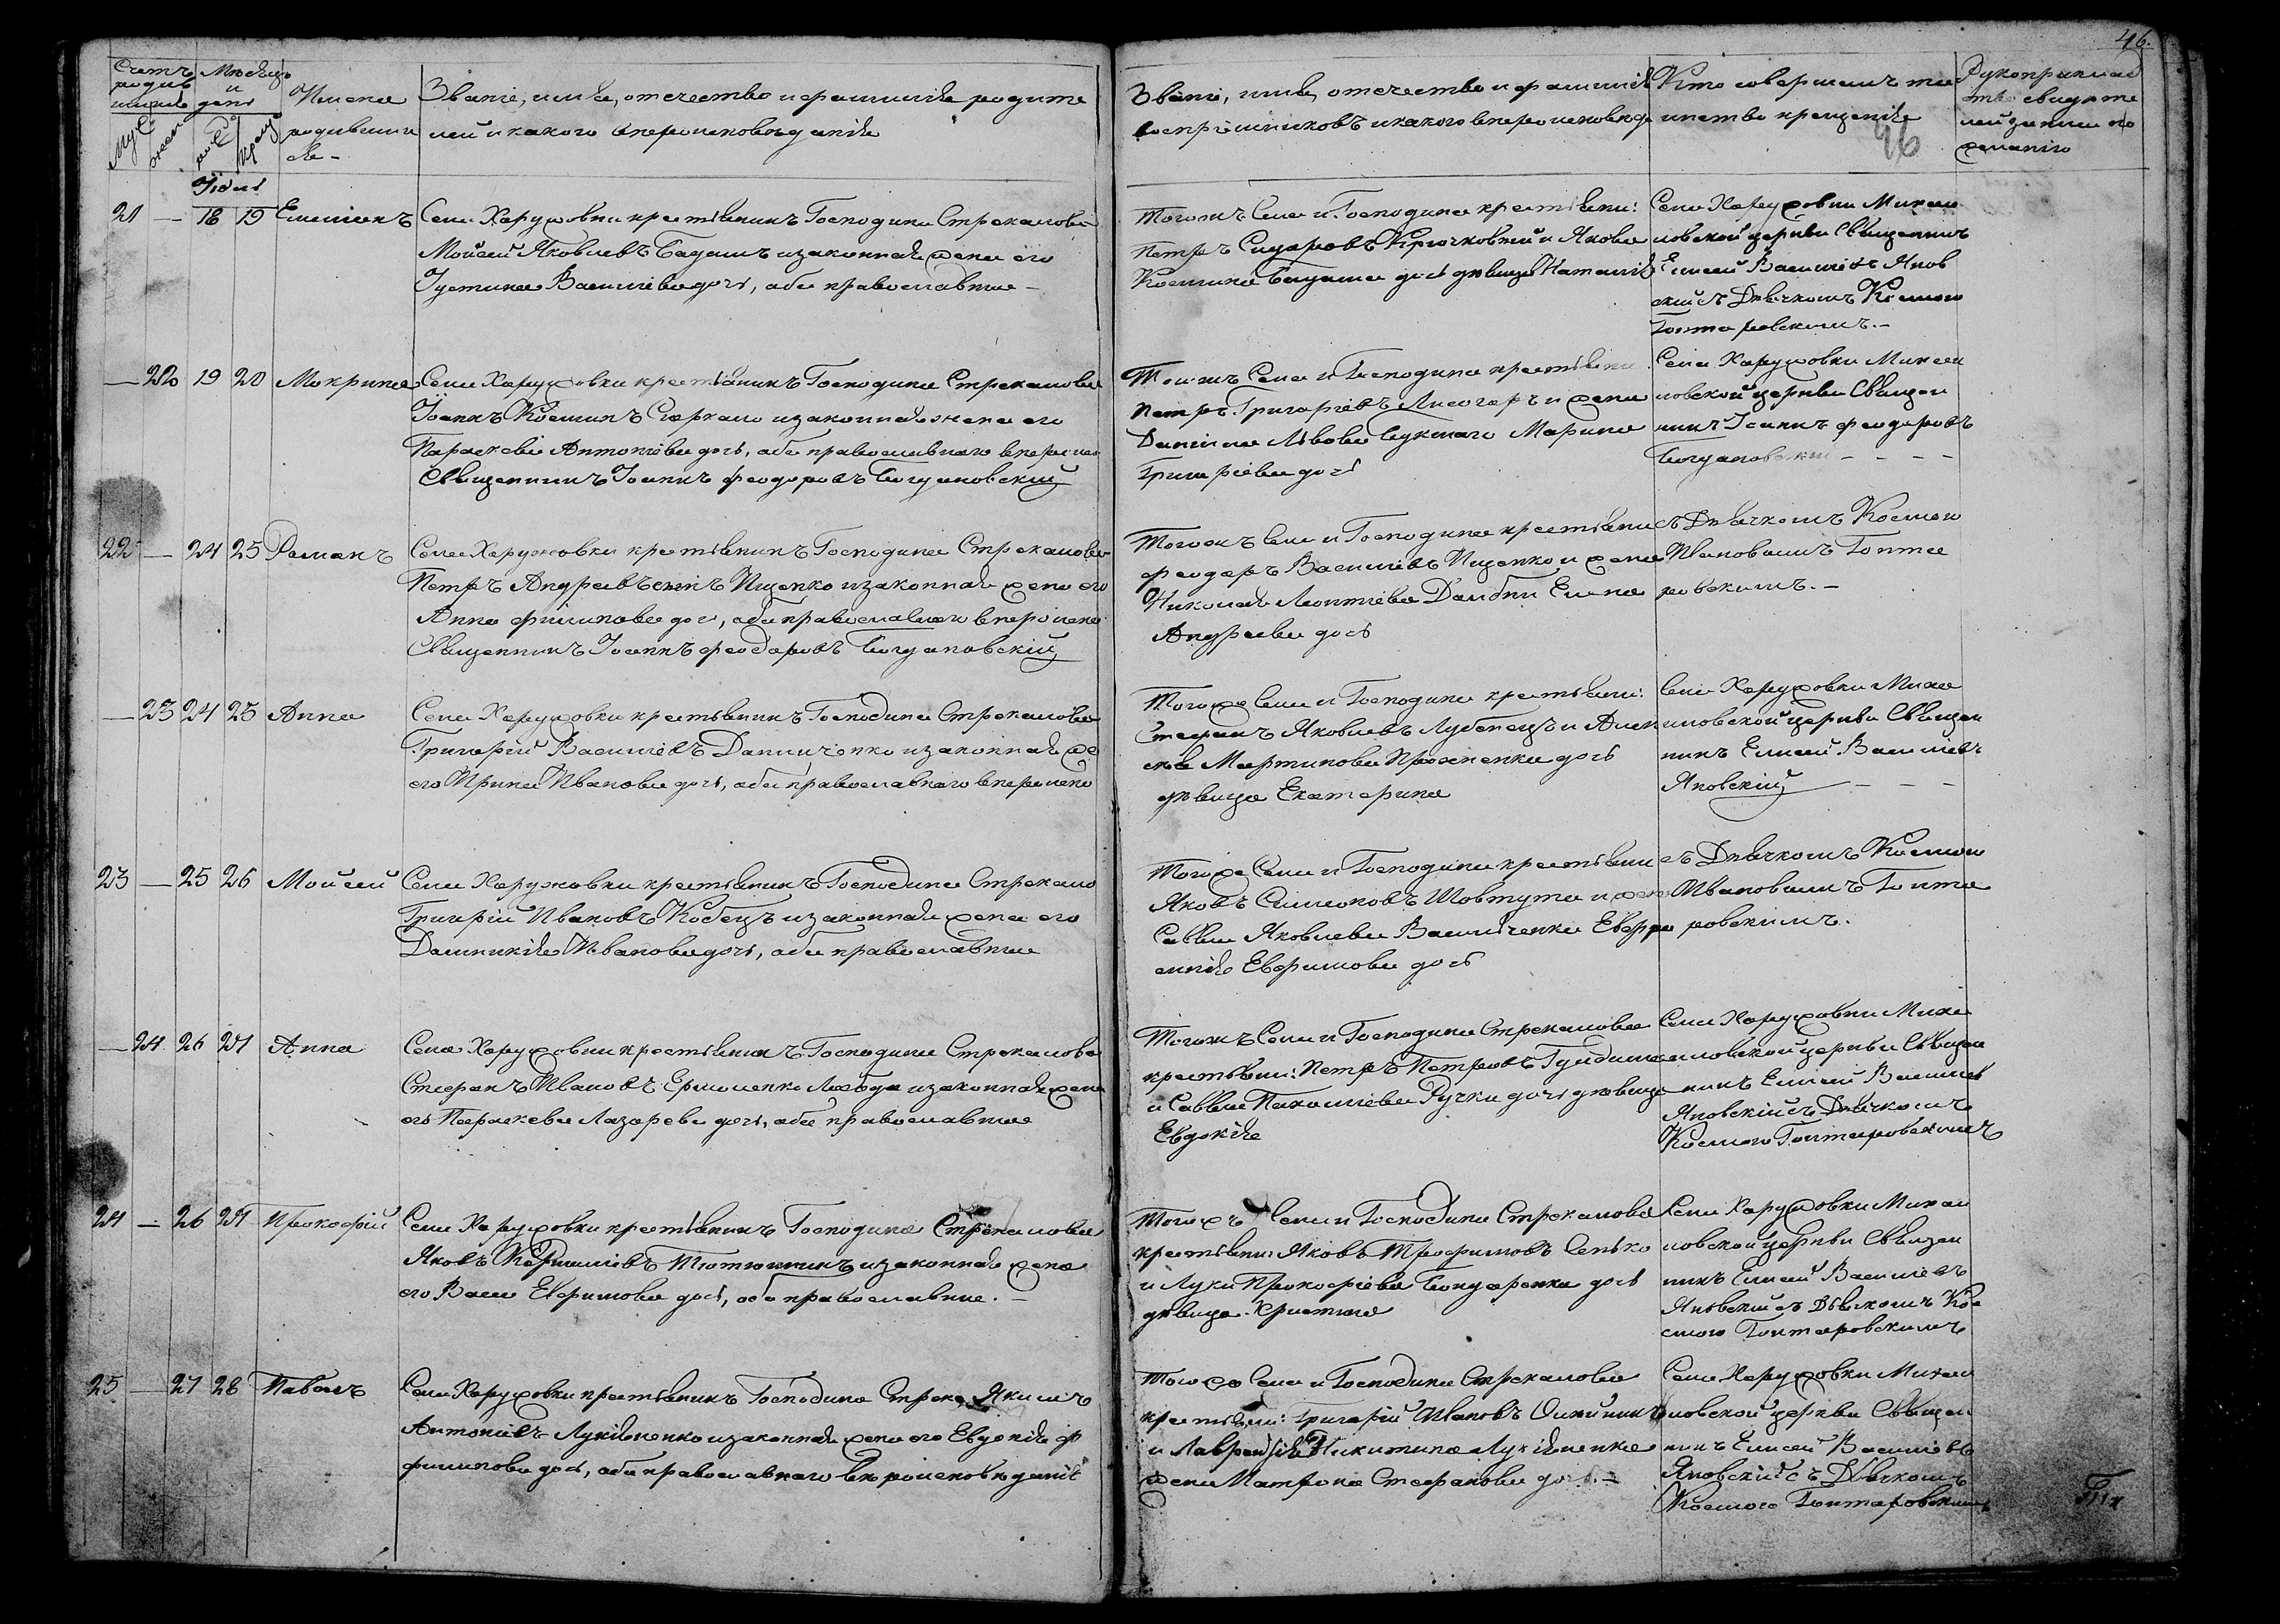 46.
Счетъ родив шихся
Мѣсяцъ и день
Имена родивших ся -
Званіе, имя, отечество и фамилія родите
лей и какого вѣроисповѣданія
Званіе, имя, отечество и фамилія
воспріемниковъ и какого вѣроисповѣда
Кто совершалъ та
инство крещенія
Рукоприклад
ство свидѣте
лей записи по
желанію
Муж
жен
рож
крещ
46
Іюль
21 — 18 19 Емеліанъ
Села Харужовки крестьянинъ Господина Стрекалова
Мойсей Яковлевъ Бадамъ и законная жена его
Іустина Васильева дочь, оба православные —
Тогожъ Села и Господина крестьяни:
Петръ Сидоровъ Крючковый и Якова
Косміна Бадама дочь дѣвица Наталія
Села Харужовки Михаи
ловской церкви Священникъ
Елисей Васильевъ Янов
скій съ Дьячкомъ Космою
Гонтаровскимъ. —
— 22 19 20 Макрина
Села Харужовки крестьянинъ Господина Стрекалова
Іоаннъ Косминъ Слоркало и законная жена его
Параскева Антоніева дочь, оба православнаго вѣроиспо
Священникъ Іоаннъ Феодоровъ Богдановскій
Тогожъ Села и Господина крестьяни
Петръ Григоріевъ Лисогоръ и жена
Даниила Львова Марина
Григоріева дочь
Села Харужовки Михаи
ловской церкви Священ
никъ Іоаннъ Феодоровъ
Богдановскій — — — —
22 — 24 25 Романъ
Села Харужовки крестьянинъ Господина Стрекалова
Петръ Андреевъ сынъ Ищенко и законная жена его
Анна Филипова дочь, оба православнаго вѣроиспо
Священникъ Іоаннъ Феодоровъ Богдановскій
Тогожъ Села и Господина крестьяни
Феодоръ Васильевъ Ищенко и жена
Николая Леонтіева Домбни Елена
Андреева дочь
съ Дьячкомъ Космою
Ивановымъ Гонта
ровскимъ. —
— 23 24 25 Анна
Села Харужовки крестьянинъ Господина Стрекалова
Григорій Васильевъ Даниченко и законная же
его Ирина Иванова дочь, оба православнаго вѣроиспо
Тогоже Села и Господина крестьяни:
Стефанъ Яковлевъ Лубенецъ и Алек
сѣя Мартинова Прохненка дочь
дѣвица Екатерина
Села Харужовки Михаи
ловской церкви Священ
никъ Елисей Васильевъ
Яновскій — — —
23 — 25 26 Мойсей
Села Харужовки крестьянинъ Господина Стрекало
Григорій Ивановъ Кобецъ и законная жена его
Домникія Иванова дочь, оба православные
Тогоже Села и Господина крестьяни
Яковъ Симеоновъ Шовтута и жена
Саввы Яковлева Васильченка Евфро
синія Ефимова дочь
съ Дьячкомъ Космою
Ивановымъ Гонта
ровскимъ.
— 24 26 27 Анна
Села Харужовки крестьянинъ Господина Стрекалова
Стефанъ Ивановъ Ермоленко Лобода и законная жена
его Параскева Лазарева дочь, оба православные
Тогожъ Села и Господина Стрекалова
крестьяни: Петръ Петровъ Гундима
и Саввы Пахоміева Ручки дочь дѣвица
Евдокія
Села Харужовки Миха
иловской церкви Священ
никъ Елисей Васильевъ
Яновскій съ Дьячкомъ
Космою Гонтаровскимъ
24 — 26 27 Прокофій
Села Харужовки крестьянинъ Господина Стрекалова
Яковъ Корниліевъ Тютюнникъ и законная жена
его Васса Ефимова дочь, оба православные. —
Тогожъ Села и Господина Стрекалова
крестьяни: Яковъ Трофимовъ Сенько
и Луки Прокофіева Бондаренка дочь
дѣвица Христина
Села Харужовки Михаи
ловской церкви Священ
никъ Елисей Васильевъ
Яновскій съ Дьячкомъ Ко
смою Гонтаровскимъ
25 — 27 28 Павелъ
Села Харужовки крестьянинъ Господина Стрека Якимъ
Антоніевъ Лукіяненко и законная жена его Евдокія Ф
филипова дочь, оба православнаго вѣроисповѣданія
Тогоже Села и Господина Стрекалова
крестьяни: Григорій Ивановъ Олійникъ
и Лаврентія Никитина Лукіяненка
жена Матрона Стефанова дочь. —
Села Харужовки Михаи
ловской церкви Священ
никъ Елисей Васильевъ
Яновскій съ Дьячкомъ
Космою Гонтаровскимъ